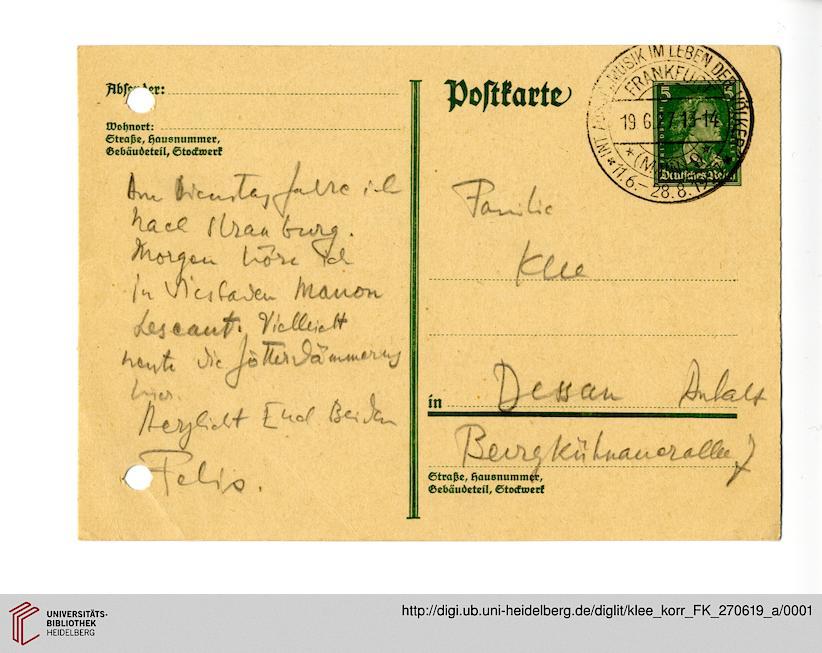 Absender:
Wohnort:
Straße, Hausnummer,
Gebäudeteil, Stockwerk
Am Dienstag fahre ich
nach
Morgen höre ich
in Wiesbaden Manon
Lescaut. Vielleicht
heute die Götterdämmerung
hier.
Herzlichst Euch Beiden
Felix.
Postkarte
INT. MUSIK IM LEBEN DER VÖLKER
FRANKFURT
19.6.27.13-14
*(MAIN)*
*11.6.-28.8.
5 5
Deutsches Reich
Familie
Klee
in Dessau Anhalt
Burgkühnauerallee 7
Straße, Hausnummer,
Gebäudeteil, Stockwerk
UNIVERSITÄTS-
BIBLIOTHEK
HEIDELBERG
http://digi.ub.uni-heidelberg.de/diglit/klee_korr_FK_270619_a/0001